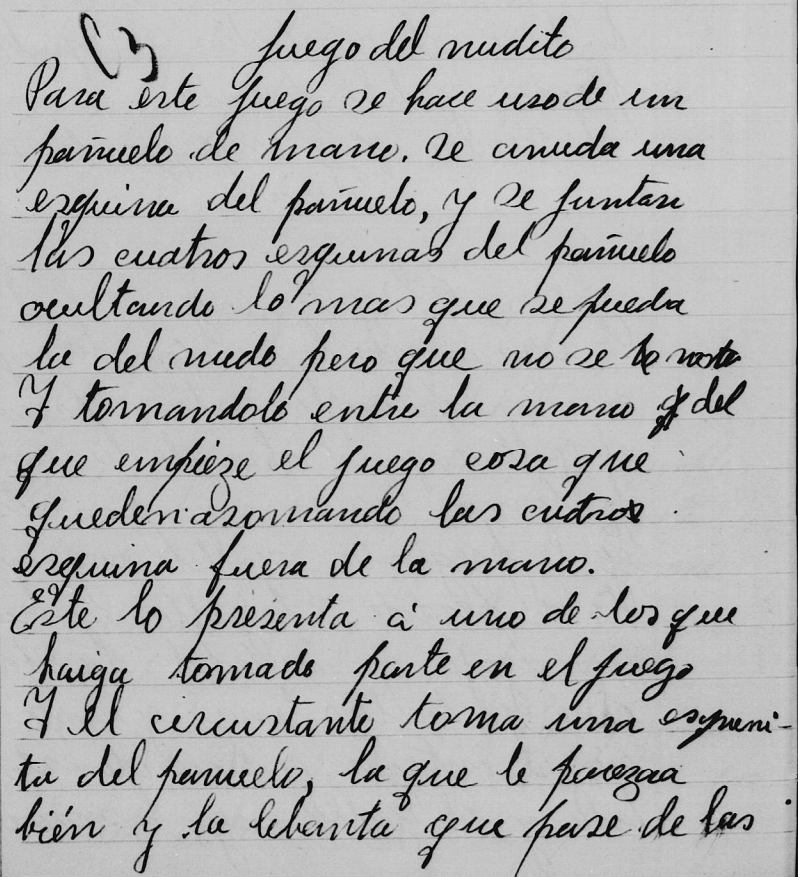 13 Juego del nudito
Para este juego se hace uso de un
pañuelo de mano. Se anuda una
esquina del pañuelo, y se juntan
las cuatros esquinas del pañuelo
ocultando lo mas que se pueda
la del nudo pero que no se
Y tomandolo entre la mano del
que empieze el juego cosa que
queden asomando las cuatros
esquina fuera de la mano.
Este lo presenta á uno de los que
haiga tomado parte en el juego
Y el circustante toma una esquini-
ta del panuelo, la que le parezca
bién y la lebanta que pase de las